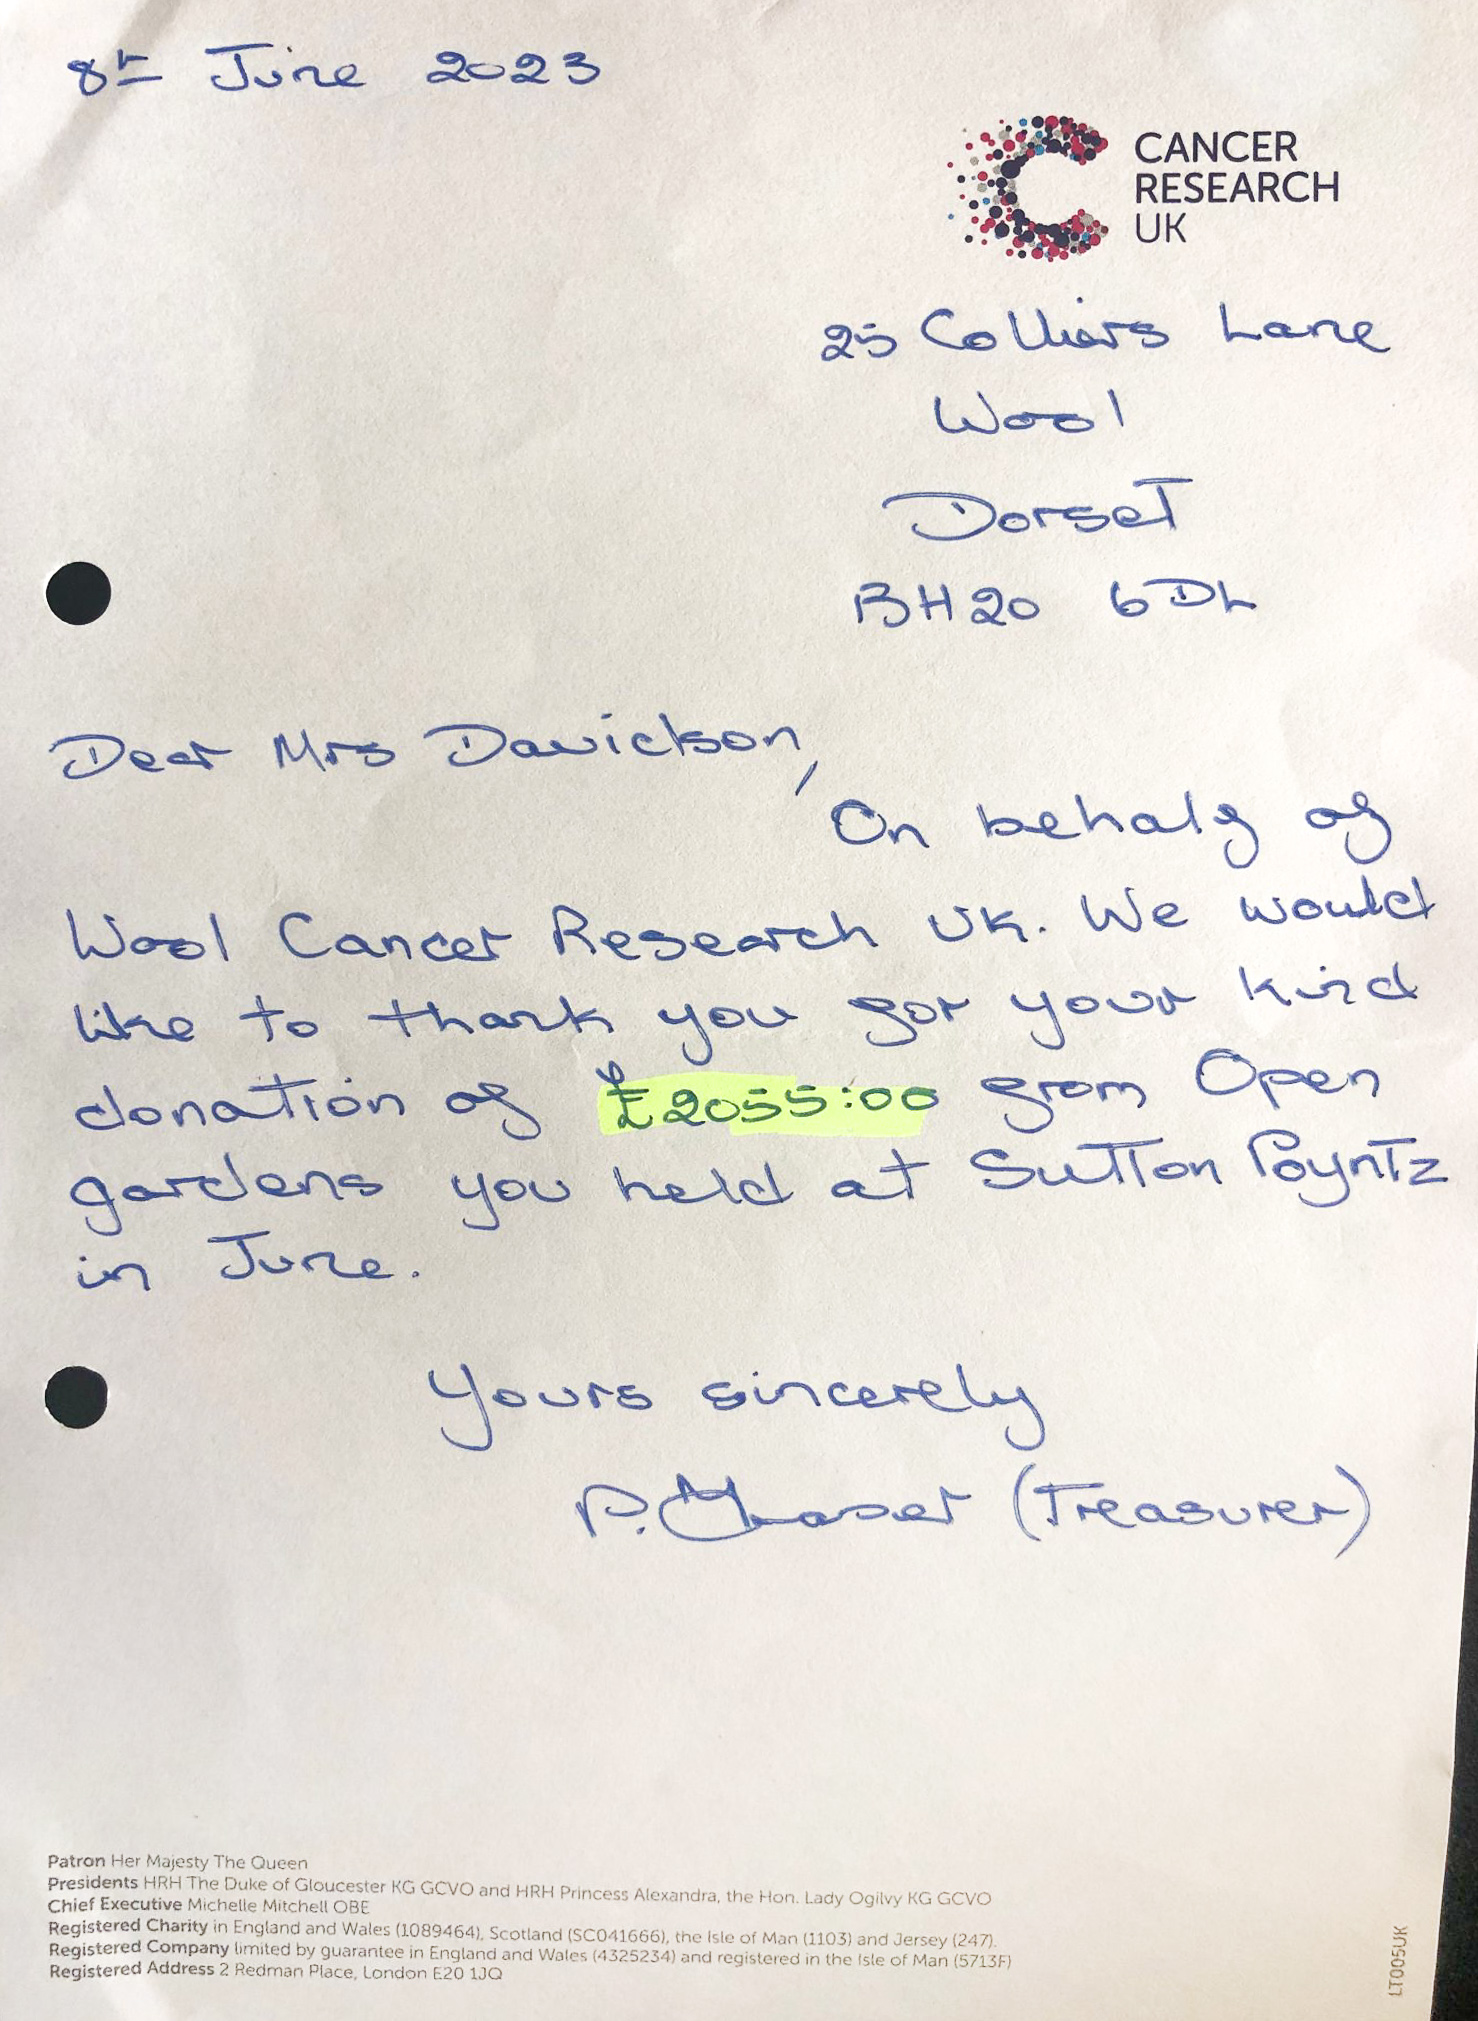 8th June 2023
CANCER
RESEARCH
UK
25 Colliers Lane
Wool
Dorset
BH20 6DL
Dear Mrs Davickson,
On behalf of
Wool Cancer Research UK. We would
like to thank you for your kind
donation of £2055:00 from Open
gardens you held at Sutton Poyntz
in June.
Yours sincerely
P. (Treasurer)
Patron Her Majesty The Queen
Presidents HRH The Duke of Gloucester KG GCVO and HRH Princess Alexandra, the Hon. Lady Ogilvy KG GCVO
Chief Executive Michelle Mitchell OBE
Registered Charity in England and Wales (1089464), Scotland (SC041666), the Isle of Man (1103) and Jersey (247).
Registered Company limited by guarantee in England and Wales (4325234) and registered in the Isle of Man (5713F)
Registered Address 2 Redman Place, London E20 1JQ
LT005UK